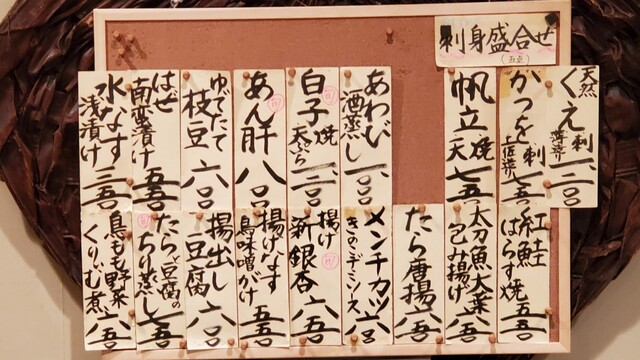 刺身盛合せ
(五点)
天然
くえ刺
薄造り
一、二〇〇
かつを刺
土佐造り
七五〇
帆立焼
天
七五〇
あわび
酒蒸し
一、八〇〇
白子焼
天ぷら
一、二〇〇
あん肝
八〇〇
ゆでたて
枝豆
六〇〇
はぜ
南蛮漬け
五五〇
水なす
浅漬け
三五〇
紅鮭
はらす焼
五五〇
太刀魚大葉
包み揚げ
八五〇
たら唐揚
八五〇
メンチカツ
きのこデミソース
六〇〇
揚げ
新銀杏
六五〇
揚げなす
鳥味噌がけ
五五〇
揚出し
豆腐
六〇〇
たらと豆腐の
ちり蒸し
七五〇
鳥もも野菜
くりぃむ煮
八五〇